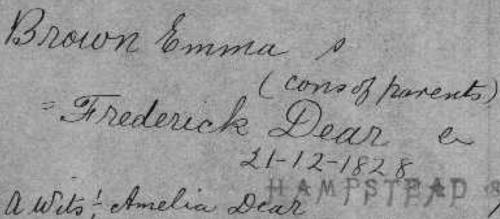 Brown Emma s
(cons of parents)
= Frederick Dear
21-12-1828
HAMPSTEAD
a Wits! Amelia Dear